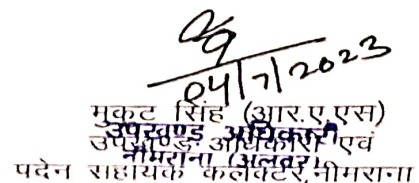 04/7/2023
मुकट सिंह (आर.ए.एस)
उपखण्ड अधिकारी एवं
उपखण्ड अधिकारी
नीमराना (अलवर)
पदेन सहायक कलेक्टर,नीमराना